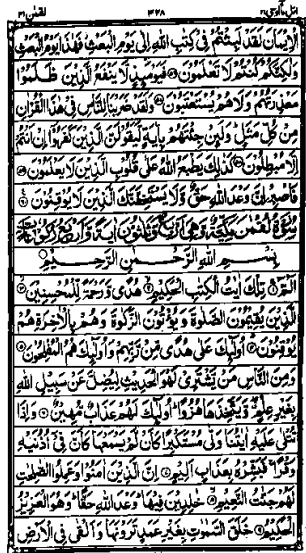 اتل مآ اوحی ٢١ ٤٢٨ لقمٰن ٣١
الْاِیْمَانَ لَقَدْ لَبِثْتُمْ فِیْ كِتٰبِ اللّٰهِ اِلٰی یَوْمِ الْبَعْثِ فَهٰذَا یَوْمُ الْبَعْثِ
وَلٰكِنَّكُمْ كُنْتُمْ لَا تَعْلَمُوْنَ فَیَوْمَىِٕذٍ لَّا یَنْفَعُ الَّذِیْنَ ظَلَمُوْا
مَعْذِرَتُهُمْ وَلَا هُمْ یُسْتَعْتَبُوْنَ وَلَقَدْ ضَرَبْنَا لِلنَّاسِ فِیْ هٰذَا الْقُرْاٰنِ
مِنْ كُلِّ مَثَلٍ وَلَىِٕنْ جِئْتَهُمْ بِاٰیَةٍ لَّیَقُوْلَنَّ الَّذِیْنَ كَفَرُوْۤا اِنْ اَنْتُمْ
اِلَّا مُبْطِلُوْنَ كَذٰلِكَ یَطْبَعُ اللّٰهُ عَلٰی قُلُوْبِ الَّذِیْنَ لَا یَعْلَمُوْنَ
فَاصْبِرْ اِنَّ وَعْدَ اللّٰهِ حَقٌّ وَّلَا یَسْتَخِفَّنَّكَ الَّذِیْنَ لَا یُوْقِنُوْنَ
سُوْرَةُ لُقْمٰنَ مَكِّیَّةٌ وَّهِیَ اَرْبَعٌ وَّثَلٰثُوْنَ اٰیَةً وَّاَرْبَعُ رُكُوْعَاتٍ
بِسْمِ اللّٰهِ الرَّحْمٰنِ الرَّحِیْمِ
الٓمّٓ تِلْكَ اٰیٰتُ الْكِتٰبِ الْحَكِیْمِ هُدًی وَّرَحْمَةً لِّلْمُحْسِنِیْنَ
الَّذِیْنَ یُقِیْمُوْنَ الصَّلٰوةَ وَیُؤْتُوْنَ الزَّكٰوةَ وَهُمْ بِالْاٰخِرَةِ هُمْ
یُوْقِنُوْنَ اُولٰٓىِٕكَ عَلٰی هُدًی مِّنْ رَّبِّهِمْ وَاُولٰٓىِٕكَ هُمُ الْمُفْلِحُوْنَ
وَمِنَ النَّاسِ مَنْ یَّشْتَرِیْ لَهْوَ الْحَدِیْثِ لِیُضِلَّ عَنْ سَبِیْلِ اللّٰهِ
بِغَیْرِ عِلْمٍ وَّیَتَّخِذَهَا هُزُوًا اُولٰٓىِٕكَ لَهُمْ عَذَابٌ مُّهِیْنٌ وَاِذَا
تُتْلٰی عَلَیْهِ اٰیٰتُنَا وَلّٰی مُسْتَكْبِرًا كَاَنْ لَّمْ یَسْمَعْهَا كَاَنَّ فِیْۤ اُذُنَیْهِ
وَقْرًا فَبَشِّرْهُ بِعَذَابٍ اَلِیْمٍ اِنَّ الَّذِیْنَ اٰمَنُوْا وَعَمِلُوا الصّٰلِحٰتِ
لَهُمْ جَنّٰتُ النَّعِیْمِ خٰلِدِیْنَ فِیْهَا وَعْدَ اللّٰهِ حَقًّا وَهُوَ الْعَزِیْزُ
الْحَكِیْمُ خَلَقَ السَّمٰوٰتِ بِغَیْرِ عَمَدٍ تَرَوْنَهَا وَاَلْقٰی فِی الْاَرْضِ